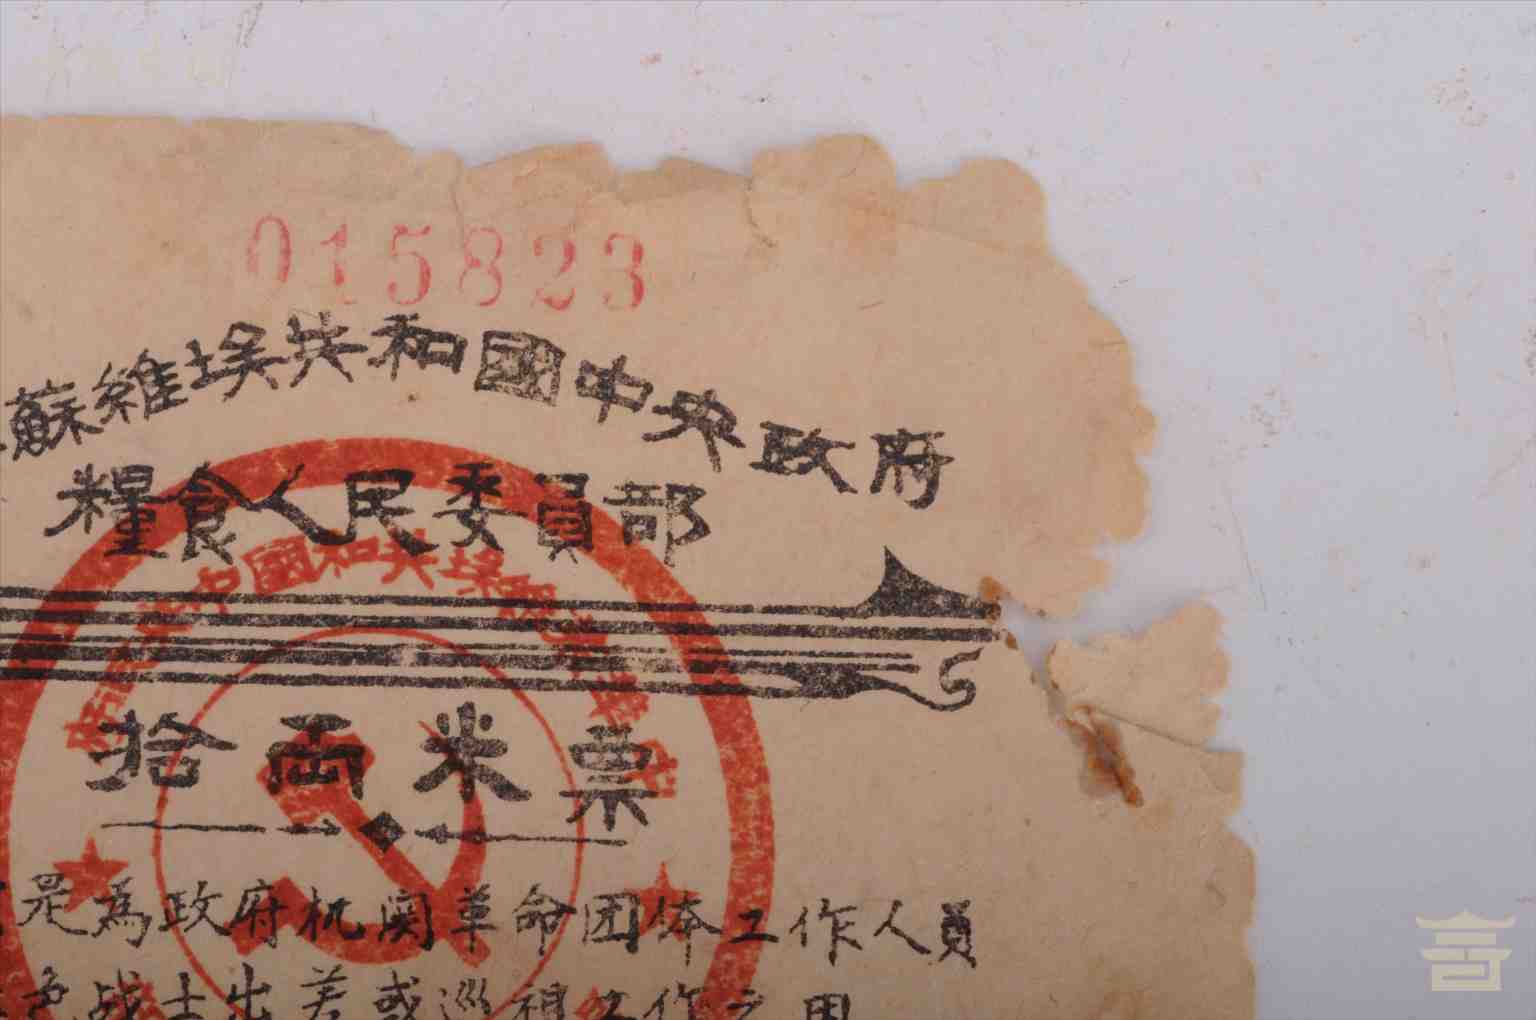 015823
蘇維埃共和國中央政府
糧食人民委員部
拾兩米票
是為政府机関革命団体工作人員
色战士出差或巡視工作之用